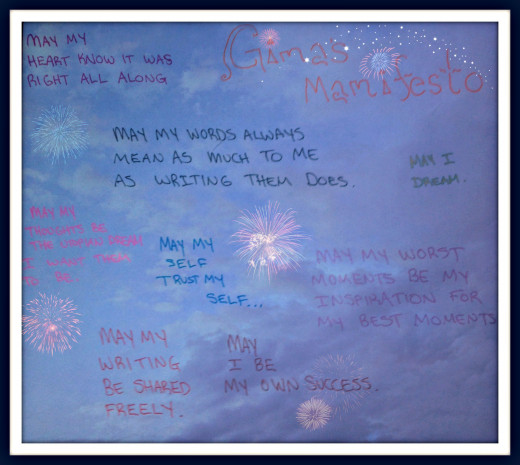 Gimas
Mamifesto
MAY MY
HEART KNOW IT WAS
RIGHT ALL ALONG
MAY MY WORDS ALWAYS
MEAN AS MUCH TO ME
AS WRITING THEM DOES.
MAY I
DREAM.
MAY MY
THOUGHTS BE
THE DREAM
I WANT THEM
TO BE.
MAY MY
SELF
TRUST MY
SELF...
MAY MY WORST
MOMENTS BE MY
INSPIRATION FOR
MY BEST MOMENTS
MAY MY
WRITING
BE SHARED
FREELY.
MAY
I BE
MY OWN SUCCESS.